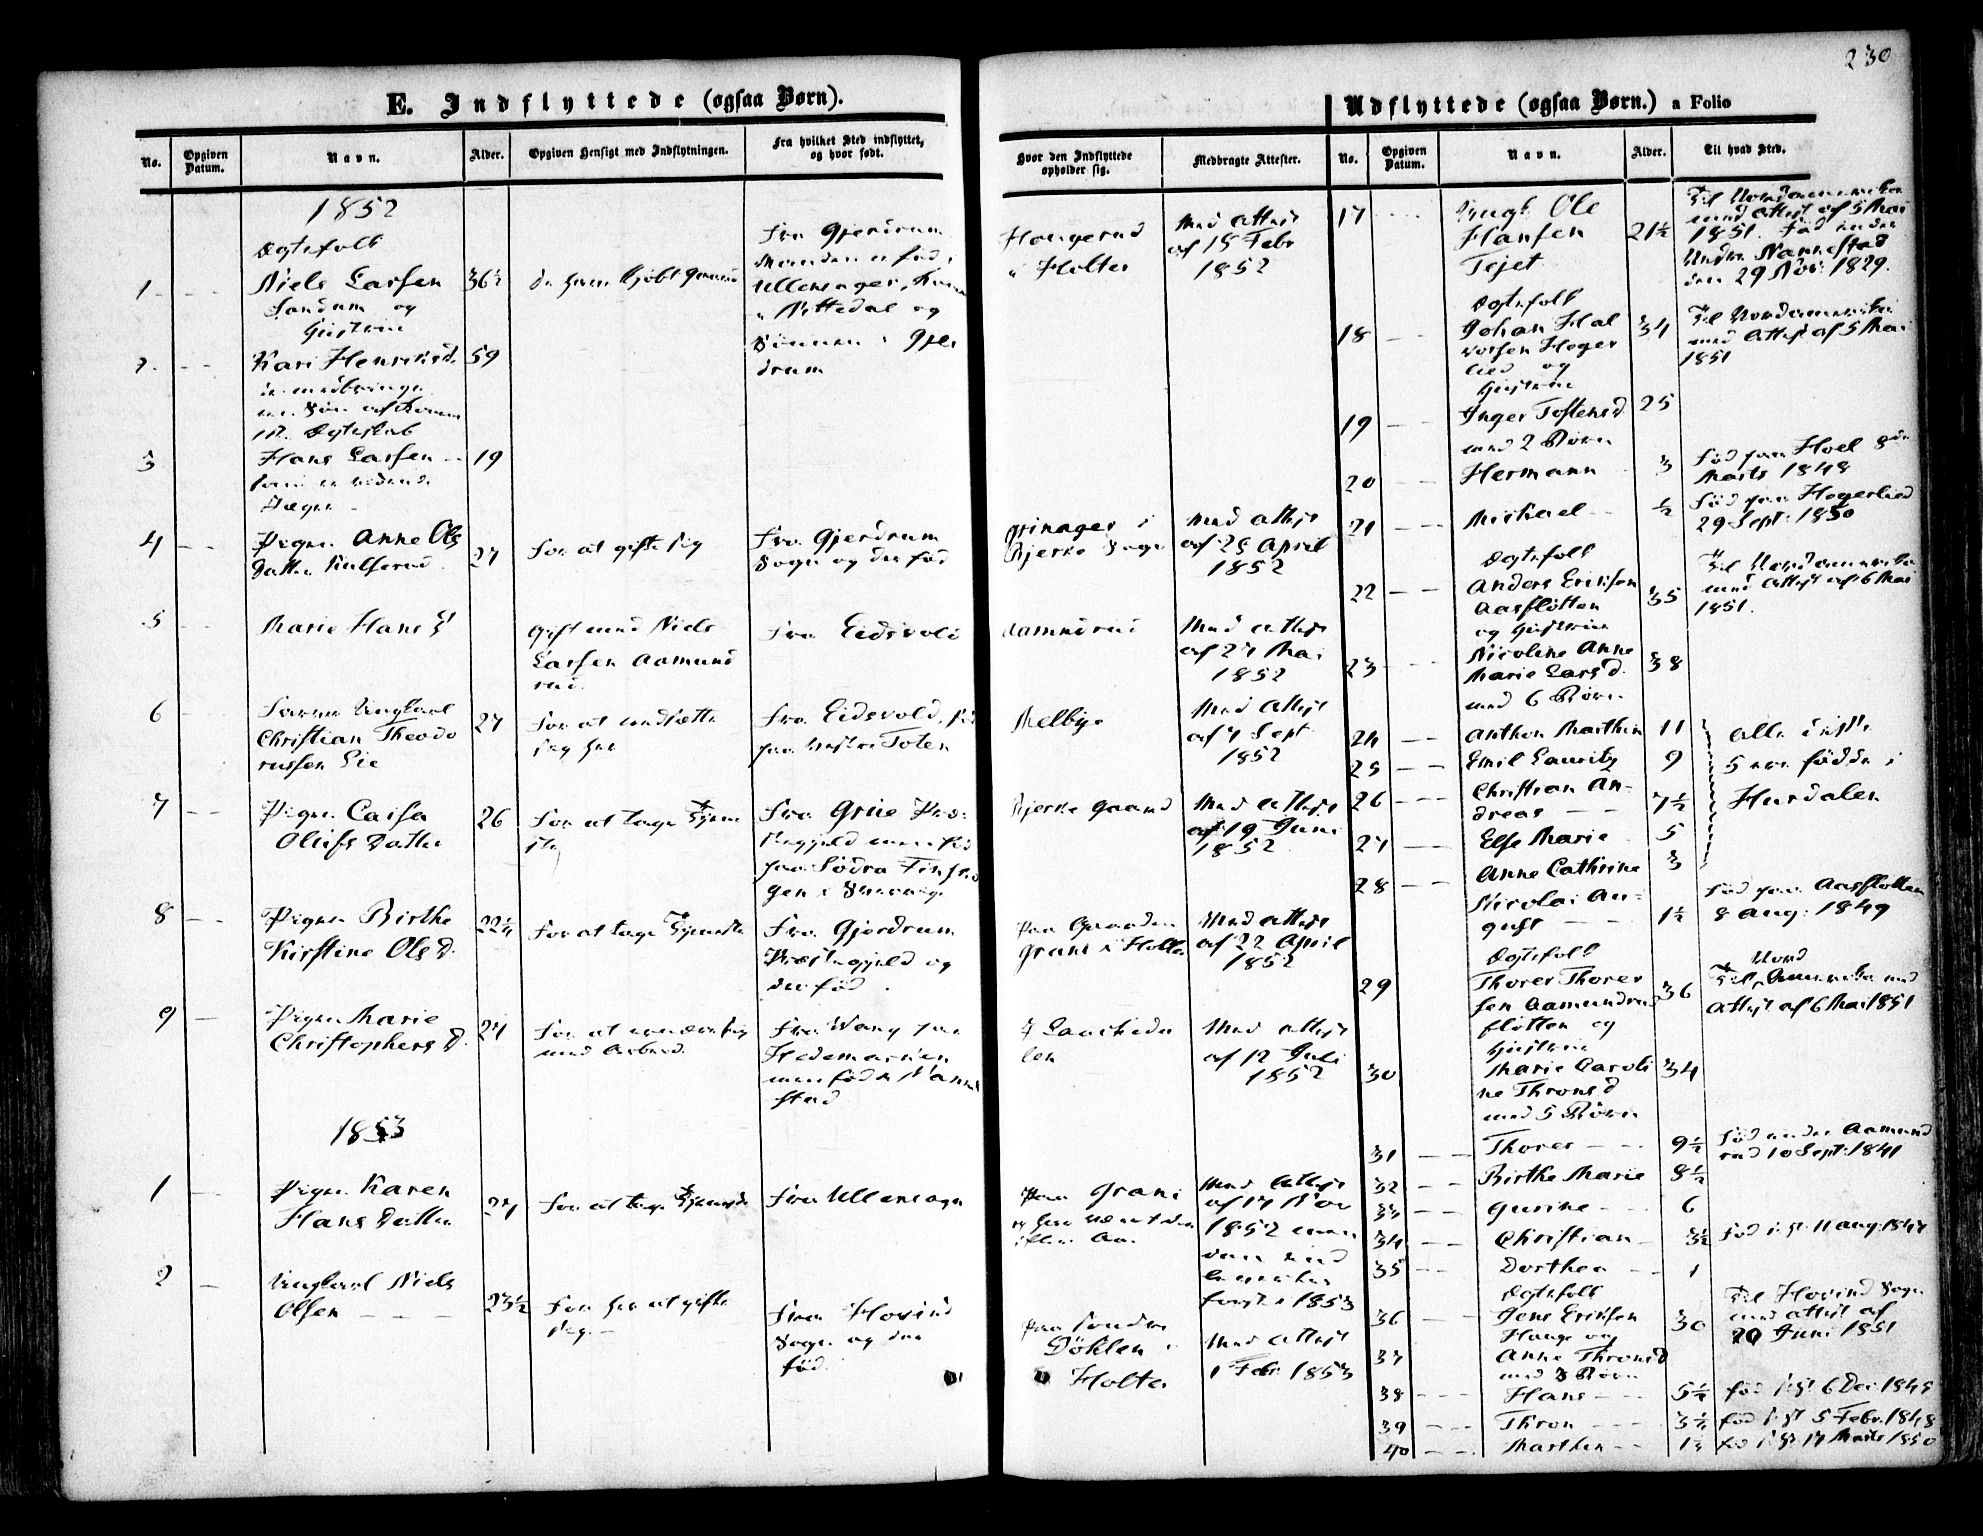 230
E. Indflyttede (ogsaa Børn).
No.
Opgiven Datum.
Navn.
Alder.
Opgiven Hensigt med Indflytningen.
Fra hvilket Sted indflyttet, og hvor født.
1852
Ægtefolk
1
Niels Larsen
36½
Fra Gjerdrum
Manden er fød i
Ullensager, Konen
i Nittedal og
Sønnen i Gjer
drum
Sandum og
Hustrue
2.
Kari Henriksd.
59
Ægteskab
3
Hans Larsen
19
4
Pigen Anne Ols
Datter
27
for at gifte sig
Fra Gjerdrum
Sogn og der fød
5
Marie Hans d
gift med Niels
Larsen Aamund
rud.
Fra Eidsvold
6
Ungkarl
Christian Theodo
russen Lie
27
for at nedsætte
sig her
Fra Eidsvold, fød
paa Toten
7
Pigen Caisa
Olufs Datter
26
for at tage Tjene
ste
Fra Grue Præ
stegjeld men fød
paa Södra Finsko
gen i Sverrig.
8
Pigen Birthe
Kirstine Ols d.
22¼
for at tage Tjeneste
Fra Gjerdrum
Præstegjeld og
der fød.
9
Pigen Marie
Christophers d.
27
for at ernære sig
med Arbeid.
Fra Vang paa
Hedemarken
men fød i Nanne
stad
1853
1
Pigen Karen
Hans Datter
27
for at tage Tjeneste
Fra Ullensager
2
Ungkarl Niels
Olsen
23½
for her at gifte
sig
Fra Hovind
Sogn og der
fød.
Hvor den Indflyttede opholder sig.
Medbragte Attester.
Haugerud
i Holter
Med Attest
af 15 Febr
1852
Grinager i
Bjerke Sogn
Med Attest
af 25 April
1852
Aamundrud
Med Attest
af 27 Mai
1852
Melbye
Med Attest
af 7 Sept
1852
Bjerke Gaard
Med Attest
af 19 Juni
1852
Paa Gaarden
Grani i Holter
Med Attest
af 22 April
1852
Med Attest
af 12 Juli
1852
Paa Grani
Med Attest
af 17 Nov
1852 men
1853
Paa Søndre
Döhlen i
Holter
Med Attest
1 Febr 1853
Udflyttede (ogsaa Børn.) a Folio
No.
Opgiven Datum.
Navn.
Alder.
Til hvad Sted.
17
Ungk. Ole
Hansen
Tejet
21½
Til Nordamerika
med Attest af 5 Mai
1851. Fød under
Nannestad
den 29 Nov. 1829.
Ægtefolk
18
Johan Hal
vorsen Hoger
lied og
Hustrue
34
Til Nordamerika
med Attest af 5 Mai
1851
19
Inger Tostensd
med 2 Børn
25
20
Hermann
3
fød paa Hoel
Marts 1848
21
Michael
½
fød paa Hogerlied
29 Sept: 1850
Ægtefolk
22
Anders Eriksen
Aasfløtten
og Hustrue
35
Til Nordamerika
med Attest af 6 Mai
1851.
23
Nicoline Anne
Marie Lars d.
med 6 Børn
38
24
Anthon Marthin
11
Alle disse
5 ere fødde i
Hurdalen
25
Emil Lauritz
9
26
Christian An-
dreas
7½
27
Else Marie
5
28
Anne Cathrine
3
Nicolai Au-
gust
1½
fød paa Aasfløtten
8 Aug: 1849
Ægtefolk
29
Thorer Thorer
sen Aamundrud
fløtten og
Hustrue
36
Nord
Til Amerika med
Attest af 6 Mai 1851
30
Marie Caroli
ne Throns d
med 5 Børn
34
31
Thorer
9½
fød under Aamund
rud 10 Sept: 1841
32
Birthe Marie
8½
33
Gurine
6
34
Christian
3½
fød 11 Aug: 1847
35
Dorthea
1
Ægtefolk
36
Jens Eriksen
Hauge og
30
Til Hovind Sogn
med Attest af
20 Juni 1851
37
Anne Throns d
med 3 Børn
38
Hans
5½
fød 6 Dec: 1845
39
Thron
3¼
fød 5 Febr. 1848
40
Marthin
17 Marts 1850